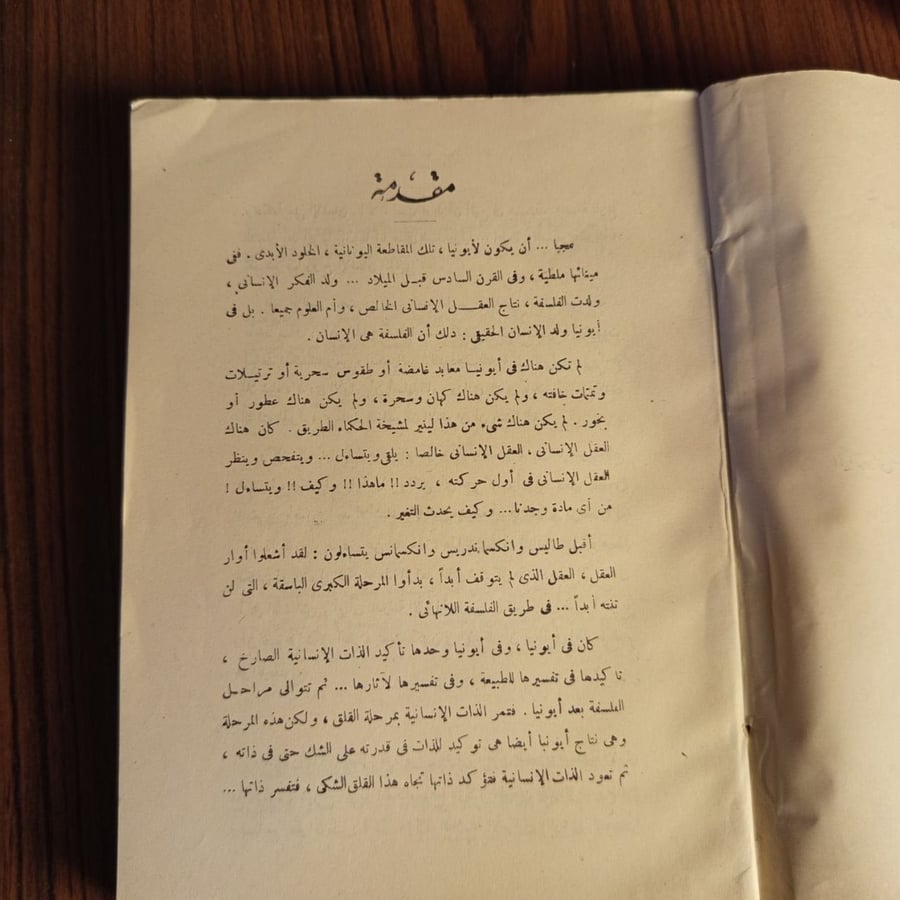 مقدمة
عجبا ... أن يكون لأيونيا ، تلك المقاطعة اليونانية ، الخلود الأبدى . ففى
مينائها ملطية ، وفى القرن السادس قبل الميلاد ... ولد الفكر الإنسانى ،
ولدت الفلسفة ، نتاج العقل الإنسانى الخالص ، وأم العلوم جميعا . بل فى
أيونيا ولد الإنسان الحقيقى : ذلك أن الفلسفة هى الإنسان .
لم تكن هناك فى أيونيا معابد غامضة أو طقوس سحرية أو ترتيلات
وتمتمات خافته ، ولم يكن هناك كهان وسحرة ، ولم يكن هناك عطور أو
بخور . لم يكن هناك شىء من هذا لينير لمشيخة الحكماء الطريق . كان هناك
العقل الإنسانى ، العقل الإنسانى خالصا : يلقى ويتساءل ... ويتفحص وينظر
العقل الإنسانى فى أول حركته ، يردد !! ماهذا !! وكيف !! ويتساءل !
من أى مادة وجدنا ... وكيف يحدث التغير .
أقبل طاليس وانكسماندريس وانكسمانس يتساءلون : لقد أشعلوا أوار
العقل ، العقل الذى لم يتوقف أبداً ، بدأوا المرحلة الكبرى الباسقة ، التى لن
تنته أبداً ... فى طريق الفلسفة اللانهائى .
كان فى أيونيا ، وفى أيونيا وحدها تأكيد الذات الإنسانية الصارخ ،
تأكيدها فى تفسيرها للطبيعة ، وفى تفسيرها لآثارها ... ثم تتوالى مراحل
الفلسفة بعد أيونيا . فتمر الذات الإنسانية بمرحلة القلق ، ولكن هذه المرحلة
وهى نتاج أيونيا أيضا هى توكيد للذات فى قدرته على الشك حتى فى ذاته ،
ثم تعود الذات الإنسانية فتؤكد ذاتها تجاه هذا القلق الشكى ، فتفسر ذاتها ...